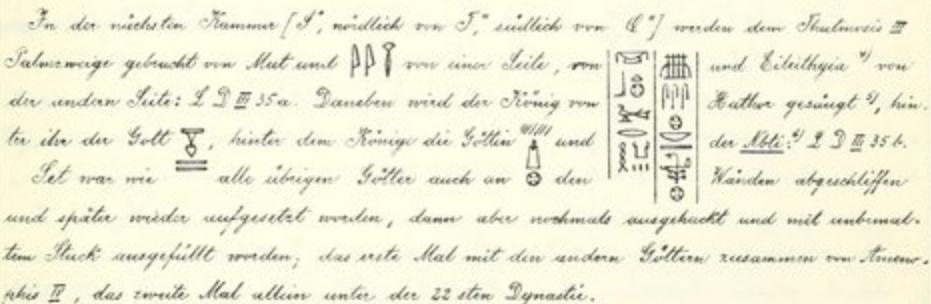 In der nächsten Kammer [S", nördlich von T", südlich von Q"] werden dem Thutmosis III
Palmzweige gebracht von Mut und von einer Seite, von und Eileithyia von
der andern Seite: L D III 35 a. Daneben wird der König von Hathor gesäugt, hin-
ter ihr der Gott, hinter dem Könige die Göttin und der Nbti: L D III 35 b.
Set war wie alle übrigen Götter auch an den Wänden abgeschliffen
und später wieder aufgesetzt worden, dann aber nochmals ausgehackt und mit unbemal-
tem Stuck ausgefüllt worden; das erste Mal mit den andern Göttern zusammen von Ameno-
phis IV, das zweite Mal allein unter der 22 sten Dynastie.